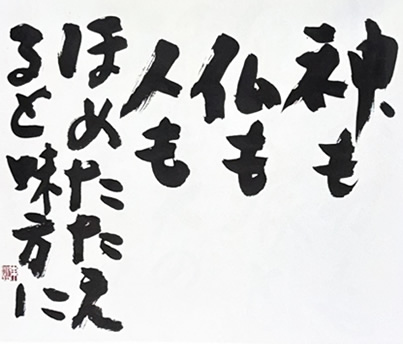 神も
仏も
人も
ほめたたえ
ると味方に